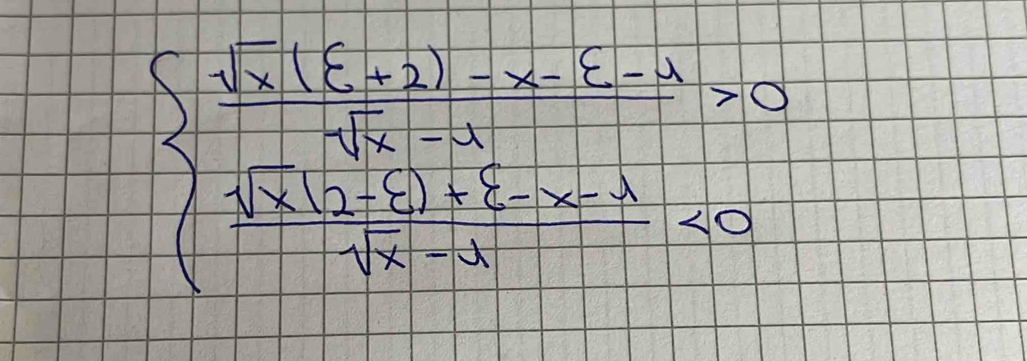 √x(ε+2) - x - ε - 1 / √x - 1 > 0
√x(2-ε) + ε - x - 1 / √x - 1 < 0